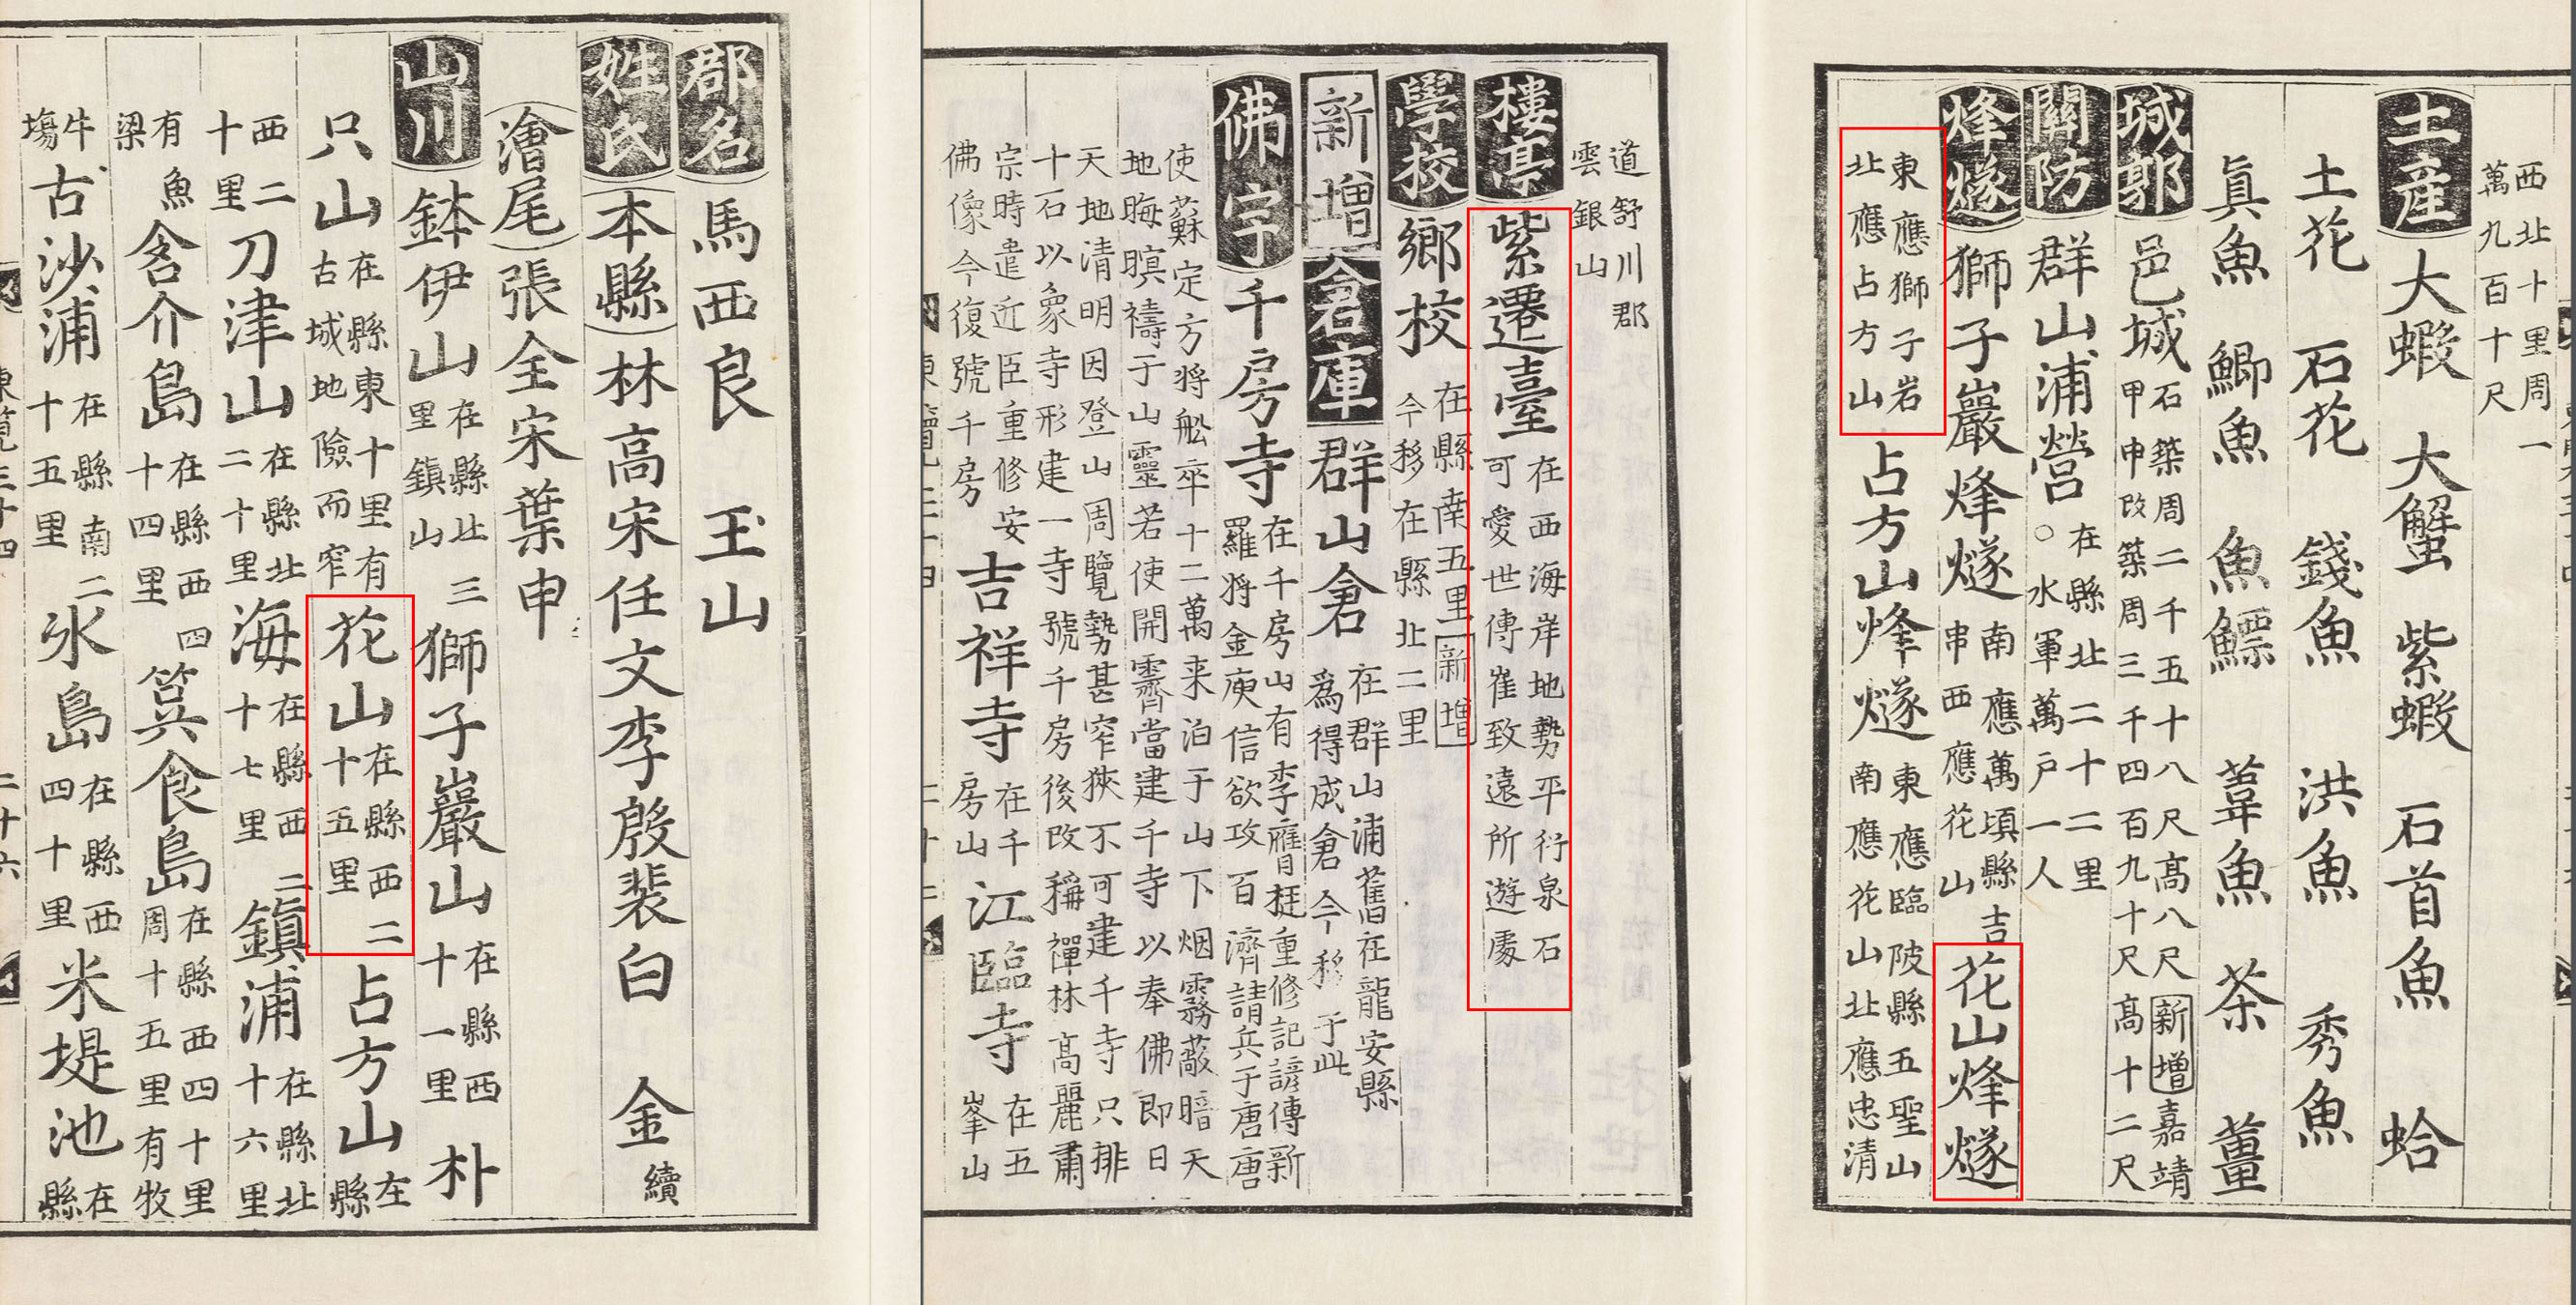 郡名 馬西良 玉山
姓氏 本縣 林高宋任文李殷裴白 金續
澮尾 張全宋葉申
山川 鉢伊山 在縣北三里鎮山 獅子巖山 在縣西十一里 朴
只山 在縣東十里有古城地險而窄 花山 在縣西二十五里 占方山 在縣
西二十里 刀津山 在縣北二十里 海 在縣西二十七里 鎮浦 在縣北十六里
有魚梁 介島 在縣西四十四里 筽食島 在縣西四十里周十五里有牧
牛塲 古沙浦 在縣南二十五里 氷島 在縣西四十里 米堤池 在縣
道舒川郡雲銀山
樓亭 紫遷臺 在西海岸地勢平衍泉石可愛世傳崔致遠所遊處
學校 鄉校 在縣南五里 新增 今移在縣北二里
新增 倉庫 群山倉 在群山浦舊在龍安縣爲得成倉今移于此
佛宇 千房寺 在千房山有李膺挺重修記諺傳新羅將金庾信欲攻百濟請兵于唐唐
使蘇定方將舩卒十二萬来泊于山下烟霧蔽暗天地晦暝禱于山靈若使開霽當建千寺以奉佛即日
天地清明因登山周覽勢甚窄狹不可建千寺只排十石以象寺形建一寺號千房後改稱禪林高麗肅
宗時遣近臣重修安佛像今復號千房 吉祥寺 在千房山 江臨寺 在五峯山
西北十里周一萬九百十尺
土産 大蝦 大蟹 紫蝦 石首魚 蛤
土花 石花 錢魚 洪魚 秀魚
眞魚 鯽魚 魚鰾 葦魚 茶 薑
城郭 邑城 石築周二千五十八尺高八尺 新增 嘉靖甲申改築周三千四百九十尺高十二尺
關防 群山浦營 在縣北二十二里○水軍萬戶一人
烽燧 獅子巖烽燧 南應萬頃縣吉串西應花山 花山烽燧
東應獅子岩北應占方山 占方山烽燧 東應臨陂縣五聖山南應花山北應忠清